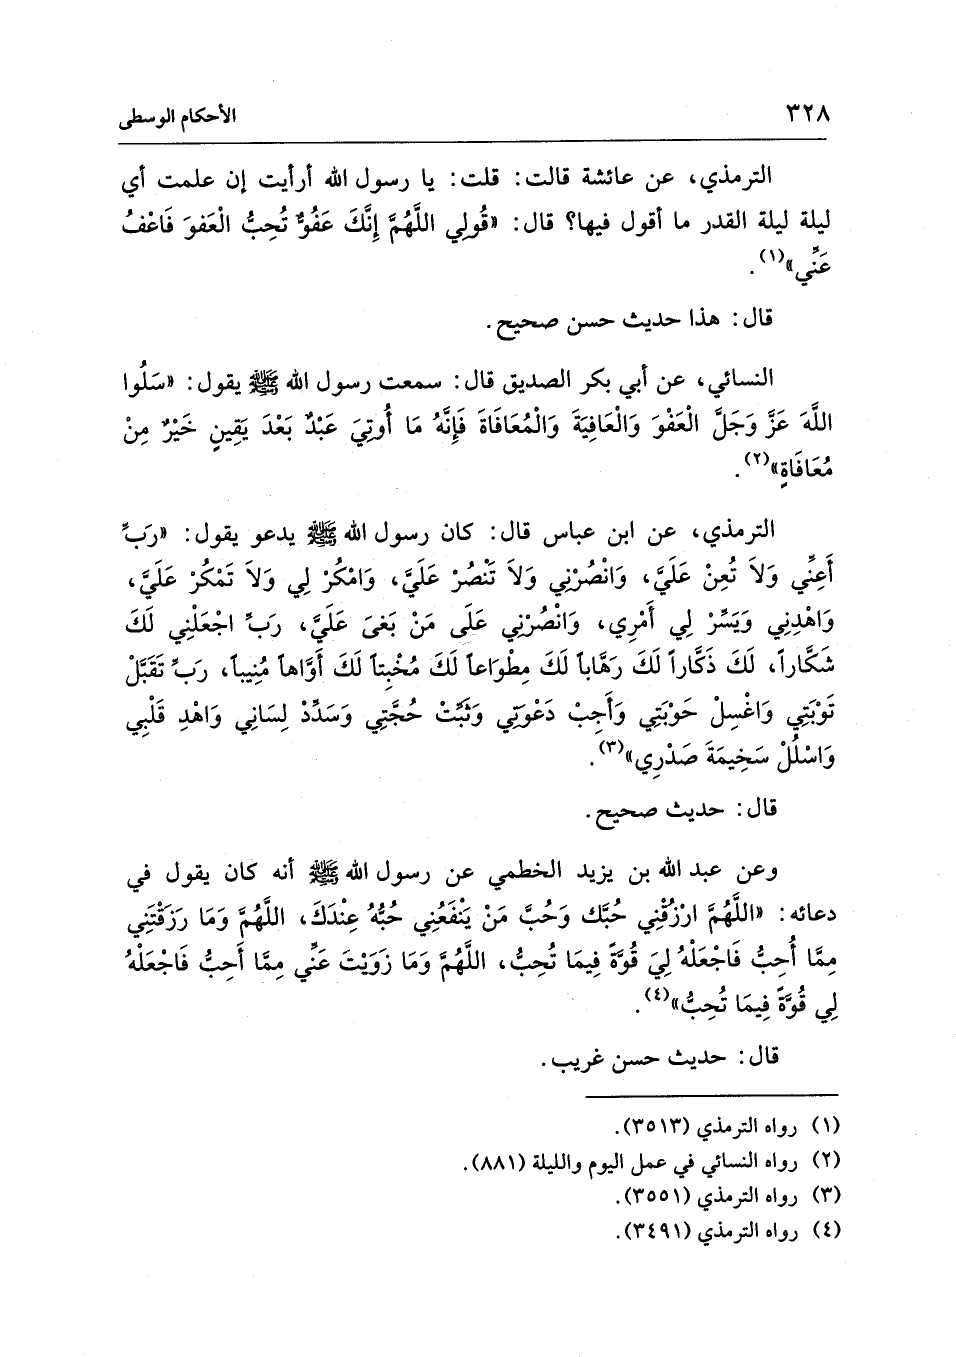 ٣٢٨ الأحكام الوسطى
الترمذي، عن عائشة قالت: قلت: يا رسول الله أرأيت إن علمت أي
ليلة ليلة القدر ما أقول فيها؟ قال: «قُولِي اللَّهُمَّ إِنَّكَ عَفُوٌّ تُحِبُّ الْعَفوَ فَاعْفُ
عَنِّي»(١).
قال: هذا حديث حسن صحيح.
النسائي، عن أبي بكر الصديق قال: سمعت رسول الله ﷺ يقول: «سَلُوا
اللَّهَ عَزَّ وَجَلَّ الْعَفْوَ وَالْعَافِيَةَ وَالْمُعَافَاةَ فَإِنَّهُ مَا أُوتِيَ عَبْدٌ بَعْدَ يَقِينٍ خَيْرٌ مِنْ
مُعَافَاةٍ»(٢).
الترمذي، عن ابن عباس قال: كان رسول الله ﷺ يدعو يقول: «رَبِّ
أَعِنِّي وَلاَ تُعِنْ عَلَيَّ، وَانْصُرْنِي وَلاَ تَنْصُرْ عَلَيَّ، وَامْكُرْ لِي وَلاَ تَمْكُرْ عَلَيَّ،
وَاهْدِنِي وَيَسِّرْ لِي أَمْرِي، وَانْصُرْنِي عَلَى مَنْ بَغىَ عَلَيَّ، رَبِّ اجْعَلْنِي لَكَ
شَكَّاراً، لَكَ ذَكَّاراً لَكَ رَهَّاباً لَكَ مِطْوَاعاً لَكَ مُخْبِتاً لَكَ أَوَّاهاً مُنِيباً، رَبِّ تَقَبَّلْ
تَوْبَتِي وَاغْسِلْ حَوْبَتِي وَأَجِبْ دَعْوَتِي وَثَبِّتْ حُجَّتِي وَسَدِّدْ لِسَانِي وَاهْدِ قَلْبِي
وَاسْلُلْ سَخِيمَةَ صَدْرِي»(٣).
قال: حديث صحيح.
وعن عبد الله بن يزيد الخطمي عن رسول الله ﷺ أنه كان يقول في
دعائه: «اللَّهُمَّ ارْزُقْنِي حُبَّك وَحُبَّ مَنْ يَنْفَعُنِي حُبُّهُ عِنْدَكَ، اللَّهُمَّ وَمَا رَزَقْتَنِي
مِمَّا أُحِبُّ فَاجْعَلْهُ لِيَ قُوَّةً فِيمَا تُحِبُّ، اللَّهُمَّ وَمَا زَوَيْتَ عَنِّي مِمَّا أُحِبُّ فَاجْعَلْهُ
لِي قُوَّةً فِيمَا تُحِبُّ»(٤).
قال: حديث حسن غريب.
(١) رواه الترمذي (٣٥١٣).
(٢) رواه النسائي في عمل اليوم والليلة (٨٨١).
(٣) رواه الترمذي (٣٥٥١).
(٤) رواه الترمذي (٣٤٩١).